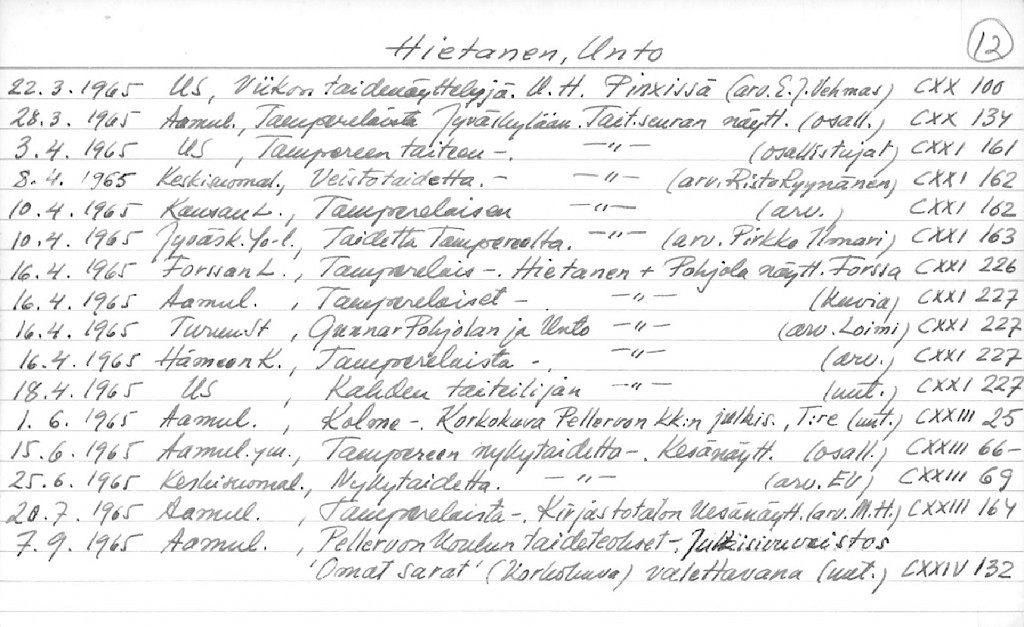 Hietanen, Unto
12
22.3.1965 US, Viikon taidenäyttelyjä. U.H. Pinxissä (arv. E.J. Vehmas) CXX 100
28.3.1965 Aamul., Tamperelaista Jyväskylään. Tait.seuran näytt. (osall.) CXX 134
3.4.1965 US, Tampereen taiteen -. -"- (osallistujat) CXXI 161
8.4.1965 Keskisuomal., Veistotaidetta. - -"- (arv. Risto Ryynänen) CXXI 162
10.4.1965 Kansan L., Tamperelaisen -"- (arv.) CXXI 162
10.4.1965 Jyväsk. Yo-l., Taidetta Tampereelta. -"- (arv. Pirkko Ilmari) CXXI 163
16.4.1965 Forssan L., Tamperelais -. Hietanen + Pohjola näytt. Forssa CXXI 226
16.4.1965 Aamul., Tamperelaiset - -"- (kuvia) CXXI 227
16.4.1965 Turun St, Gunnar Pohjolan ja Unto -"- (arv. Loimi) CXXI 227
16.4.1965 Hämeen K., Tamperelaista -, -"- (arv.) CXXI 227
18.4.1965 US, Kahden taiteilijan -"- (uut.) CXXI 227
1.6.1965 Aamul., Kolme -. Korkokuva Pellervon kk:n julkis., Tre (uut.) CXXIII 25
15.6.1965 Aamul. ym., Tampereen nykytaidetta -. Kesänäytt. (osall.) CXXIII 66-
25.6.1965 Keskisuomal., Nykytaidetta. -"- (arv. EV) CXXIII 69
20.7.1965 Aamul., Tamperelaista -. Kirjastotalon kesänäytt. (arv. M.H.) CXXIII 164
7.9.1965 Aamul., Pellervon koulun taideteokset -. Julkisivuveistos
'Omat sarat' (korkokuva) valettavana (uut.) CXXIV 132